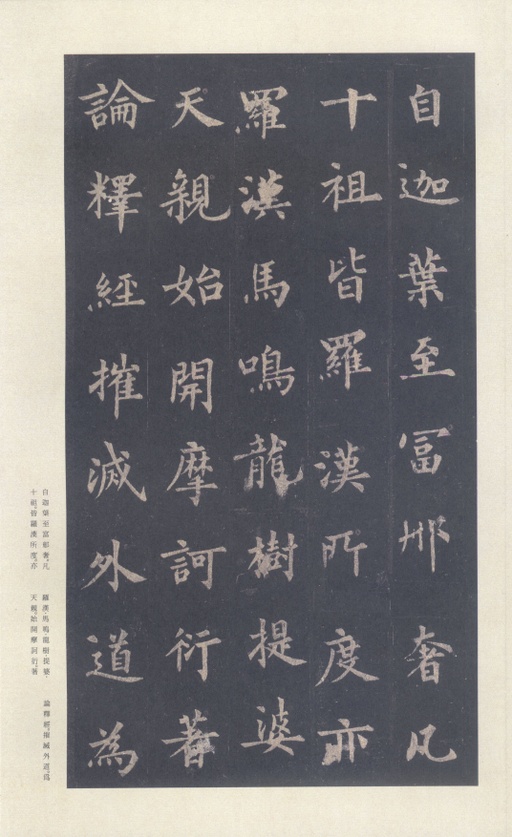 自迦葉至冨郍奢凡
十祖皆羅漢所度亦
羅漢馬鳴龍樹提婆
天親始開摩訶衍著
論釋經摧滅外道為
自迦葉至富郍奢。凡
十祖。皆羅漢所度。亦
羅漢。馬鳴。龍樹。提婆。
天親。始開摩訶衍。著
論釋經。摧滅外道。爲